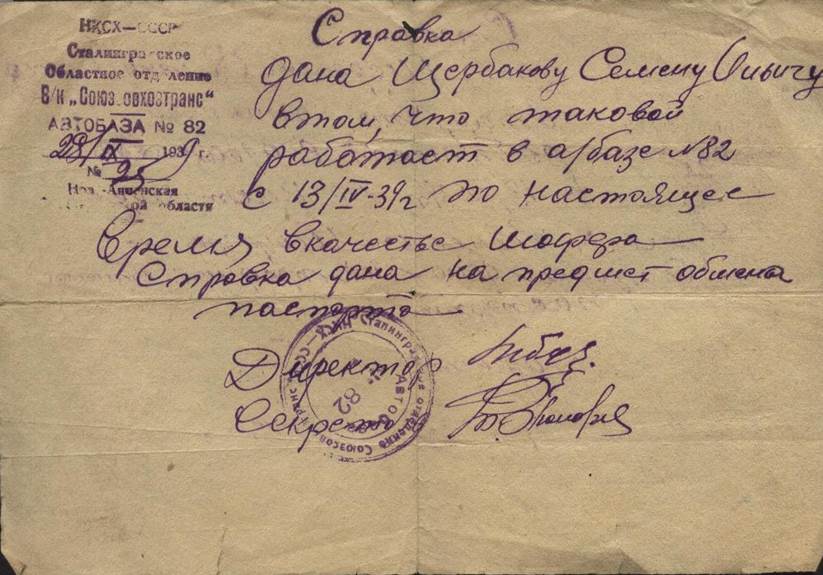 НКСХ—СССР
Сталинградское
Областное отделение
В/К „Союзсовхозтранс“
АВТОБАЗА № 82
29/IX 1939 г.
№ 25
Ново-Аннинская
области
Справка
дана Щербакову Семену Ильичу
в том, что таковой
работает в а/базе №82
с 13/IV-39г по настоящее
время в качестве шофера
Справка дана на предмет обмена
паспорта
Директор
Секретарь
82